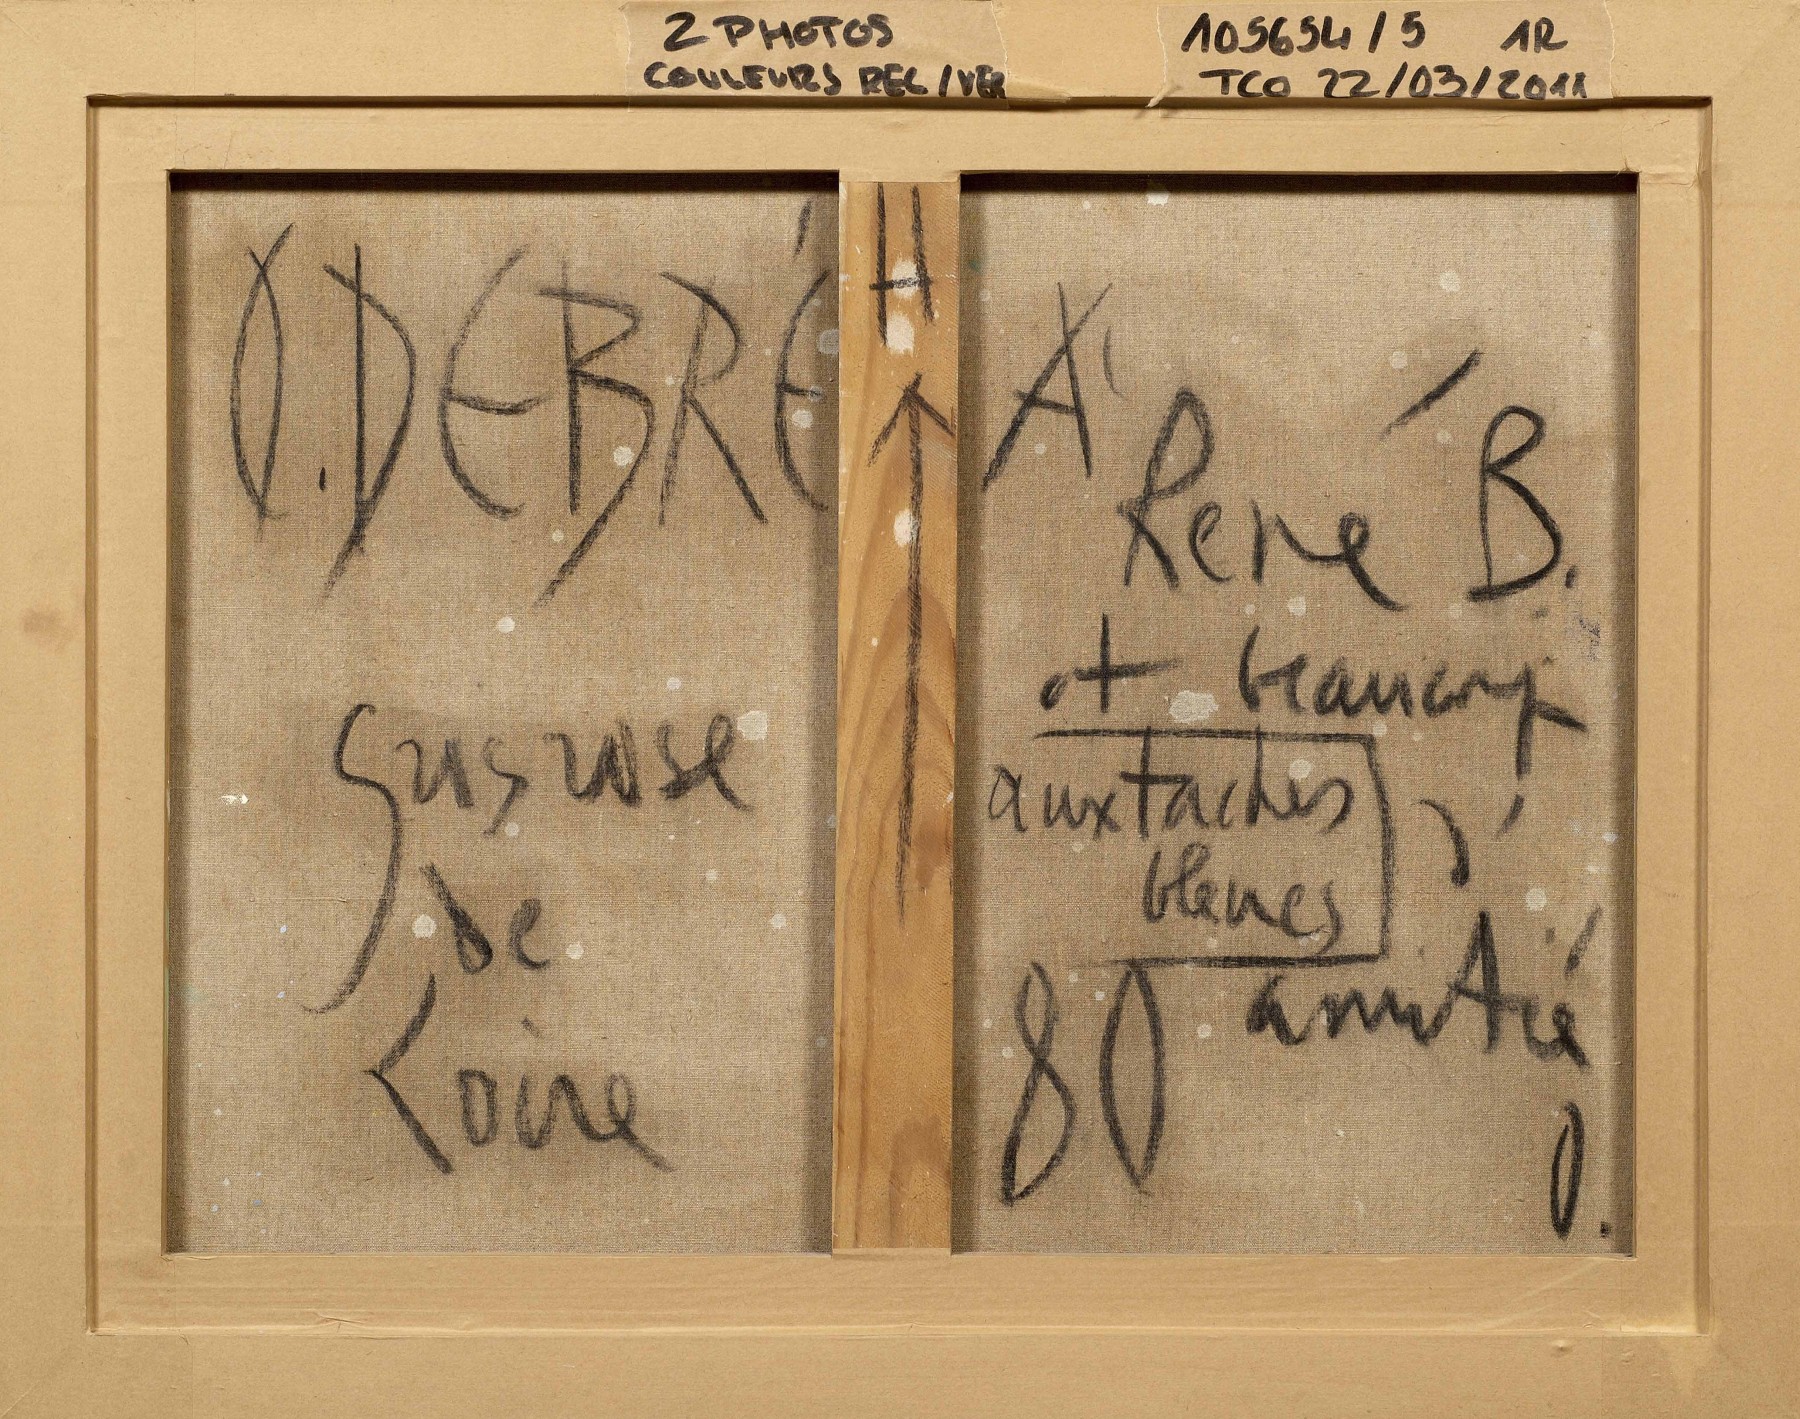 2 PHOTOS
COULEURS REC/VER
105654/5 1R
TCO 22/03/2011
O. DEBRÉ
H
de
Loire
A'
René B.
et beaucoup
aux taches
bleues
80 amitié
O.